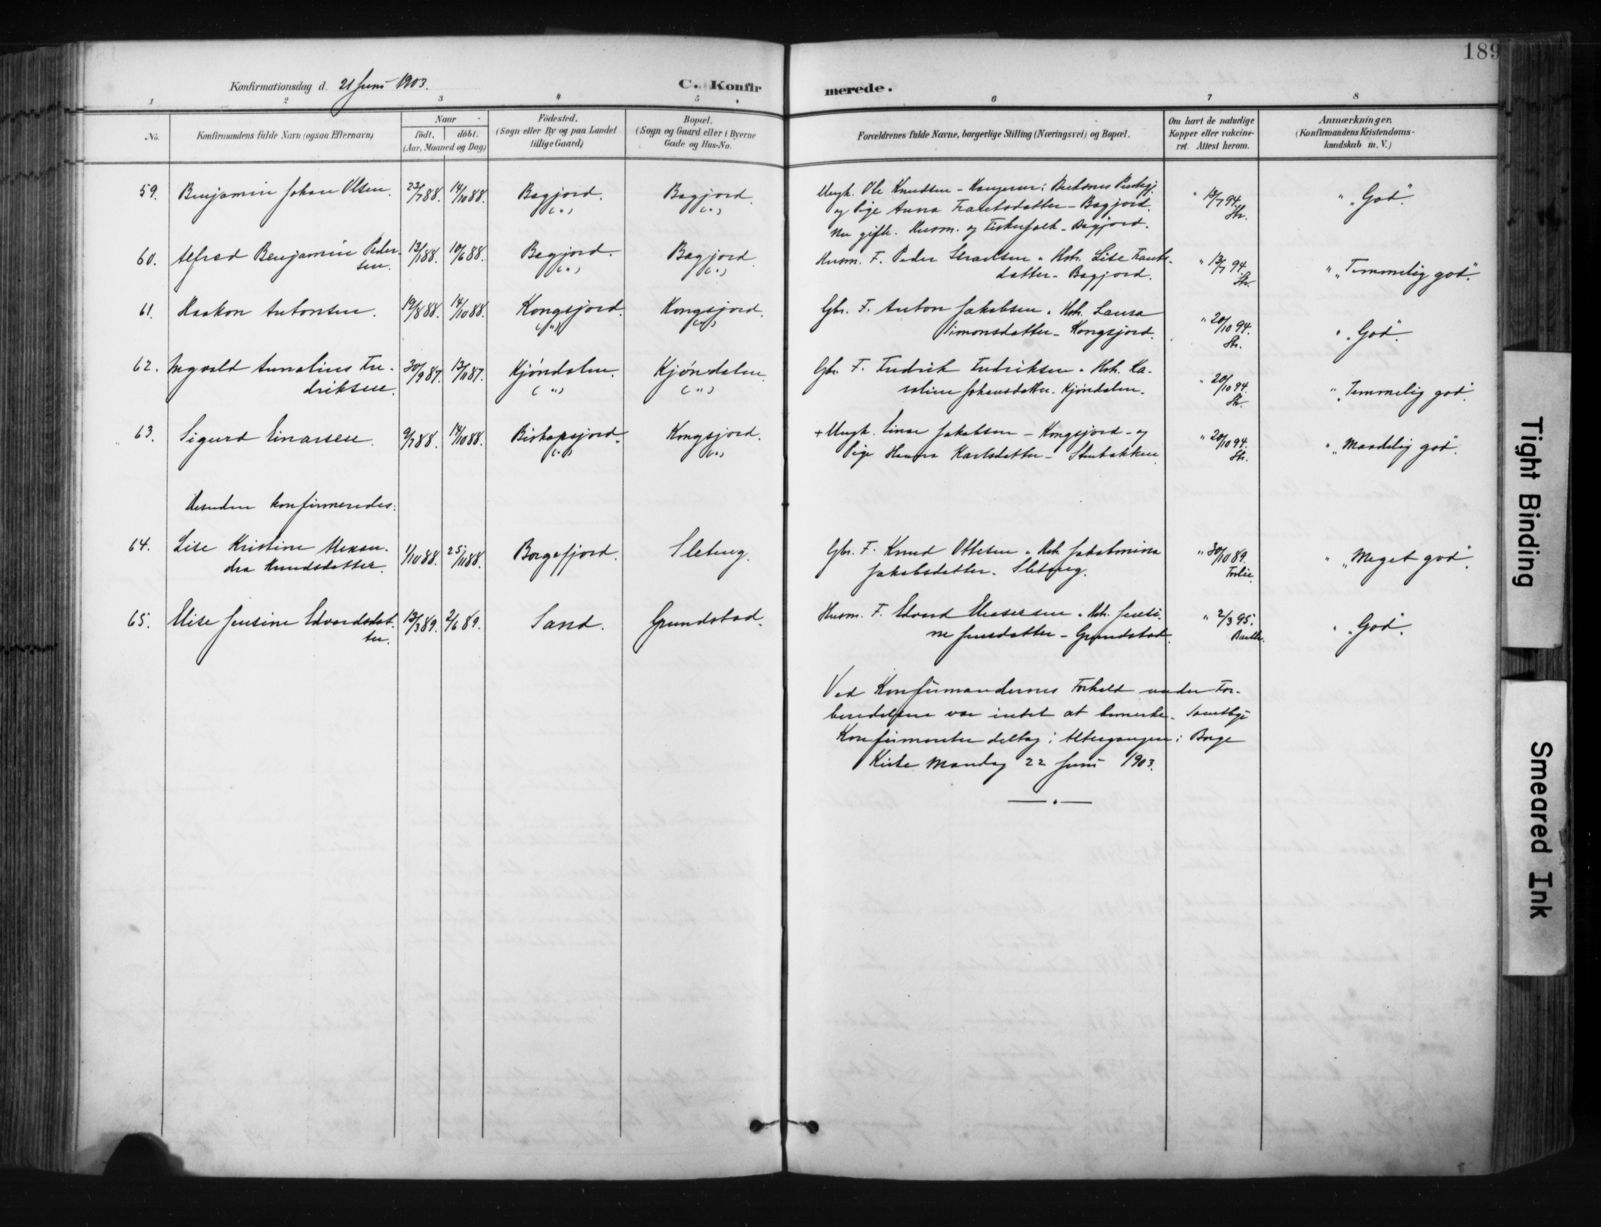 189
Konfirmationsdag d. 21 Juni 1903.
C. Konfirmerede.
1 2 3 4 5 6 7 8
No.
Konfirmandens fulde Navn (ogsaa Efternavn)
Naar
født. døbt.
(Aar, Maaned og Dag)
Fødested.
(Sogn eller By og paa Landet
tillige Gaard)
Bopæl.
(Sogn og Gaard eller i Byerne
Gade og Hus-No.
Forældrenes fulde Navne, borgerlige Stilling (Næringsvei) og Bopæl.
Om havt de naturlige
Kopper eller vakcineret. Attest herom.
Anmærkninger.
(Konfirmandens Kristendomskundskab m. V.)
59. Benjamin Johan Olsen. 23/7 88. 14/10 88. Bøgjord. Bøgjord. Ungk. Ole Knudsen
og Pige Anna - Bøgjord. 13/7 94. "God".
Nu gift. Husm. og Fiskerfolk - Bøgjord.
60. Alfred Benjamin Peder-
sen. 13/1 88. 10/6 88. Bøgjord. Bøgjord. Husm. F. Peder
datter - Bøgjord. 13/7 94. "Temmelig god".
61. Haakon Antonsen. 19/8 88. 14/10 88. Kongsjord. Kongsjord. Gbr. F. Anton Jakobsen
Simonsdatter - Kongsjord. 20/10 94. "God".
62. Ingvald Annalius Fre-
driksen. 30/9 87. 13/11 87. Kjøndalen. Kjøndalen. Gbr. F. Fredrik Fredriksen
Johansdatter. Kjøndalen. 20/10 94. "Temmelig god".
63. Sigurd Einarsen. 9/7 88. 14/10 88. Biskopsjord. Kongsjord. + Ungk. Einar Jakobsen - Kongsjord - og
Pige Karlsdatter - Stenbakken 20/10 94. "Maadelig god".
Desuden konfirmeredes:
64. Lise Kristine Alexan-
dra Knudsdatter. 1/10 88. 25/11 88. Borgefjord. Sleteng. Gbr. F. Knud Ottesen
Jakobsdatter. Sleteng. 30/10 89. "Meget god".
65. Elise Jensine Edvardsdat-
ter. 13/3 89. 2/6 89. Sand. Grundstad. Husm. F. Edvard
ne Jensdatter - Grundstad. 2/3 95. "God".
Ved Konfirmandernes Forhold under For-
beredelsen var intet at bemerke. Samtlige
Konfirmanter deltog i Altergangen i Borge
Kirke Mandag 22 Juni 1903.
Tight Binding
Smeared Ink